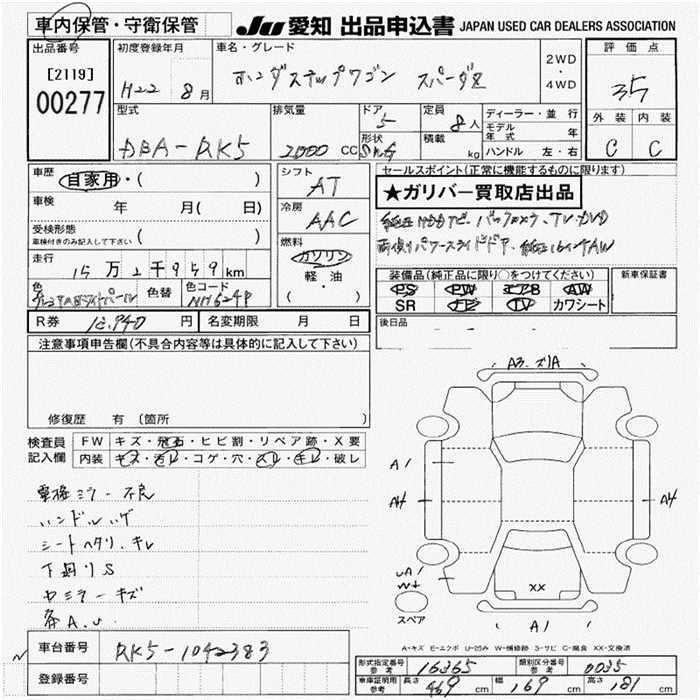 車内保管・守衛保管
JU 愛知 出品申込書 JAPAN USED CAR DEALERS ASSOCIATION
出品番号
[2119]
00277
初度登録年月
H22 8月
車名・グレード
ホンダステップワゴン スパーダZ
2WD
・
4WD
評価点
35
外装 内装
C C
型式
DBA-RK5
排気量
2000 CC
ドア
5
形状
定員
8人
積載
kg
ディーラー・並行
モデル年式 年
ハンドル 左・右
車歴
自家用・( )
車検 年 月( 日)
受検形態
車検付きのみ記入して下さい ( )
走行
15万2千959km
色
色替
色コード
NH624P
シフト
AT
冷房
AAC
燃料
ガソリン
・
軽・油
( )
セールスポイント(正常に機能するものに限ります)
★ガリバー買取店出品
純正HDDナビ・バックカメラ、TV・DVD
両側パワースライドドア、純正16インチAW
装備品(純正品に限り○をつけてください)
PS PW エアB AW
SR ナビ TV カワシート
新車保証書
後日品
R券 円
名変期限 月 日
注意事項申告欄(不具合内容等は具体的に記入して下さい)
修復歴 有 (箇所 )
検査員
記入欄
FW キズ・飛石・ヒビ割・リペア跡・X要
内装 キズ・汚レ・コゲ・穴・スレ・キレ・破レ
電格ミラー不良
ハンドルハゲ
シートヘタリ、キレ
下廻りS
ミラーキズ
A3
A1
A4
A4
UA1
W
スペア
XX
A1
A-キズ E-エクボ U-凹み W-補修跡 S-サビ C-腐食 XX-交換済
車台番号
RK5-1042383
登録番号
型式指定番号
参考
16365
類別区分番号
参考
0035
車庫証明用
参考
長さ 469 cm 幅 169 cm 高さ 181 cm